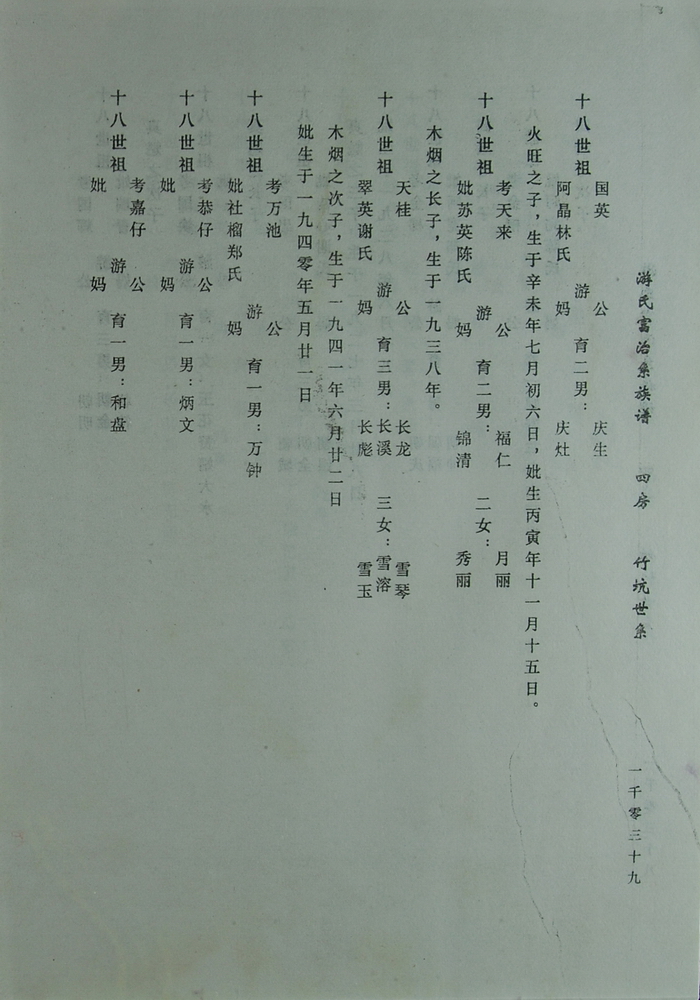 游氏富治系族谱 四房 竹坑世系 一千零三十九
国英 公 庆生
十八世祖 游 育二男：
阿晶林氏 妈 庆灶
火旺之子，生于辛未年七月初六日，妣生丙寅年十一月十五日。
考天来 公 福仁 月丽
十八世祖 游 育二男： 二女：
妣苏英陈氏 妈 锦清 秀丽
木烟之长子，生于一九三八年。
天桂 公 长龙 雪琴
十八世祖 游 育三男：长溪 三女：雪溶
翠英谢氏 妈 长彪 雪玉
木烟之次子，生于一九四一年六月廿二日
妣生于一九四零年五月廿一日
考万池 公
十八世祖 游 育一男：万钟
妣社榴郑氏 妈
考恭仔 公
十八世祖 游 育一男：炳文
妣 妈
考嘉仔 公
十八世祖 游 育一男：和盘
妣 妈